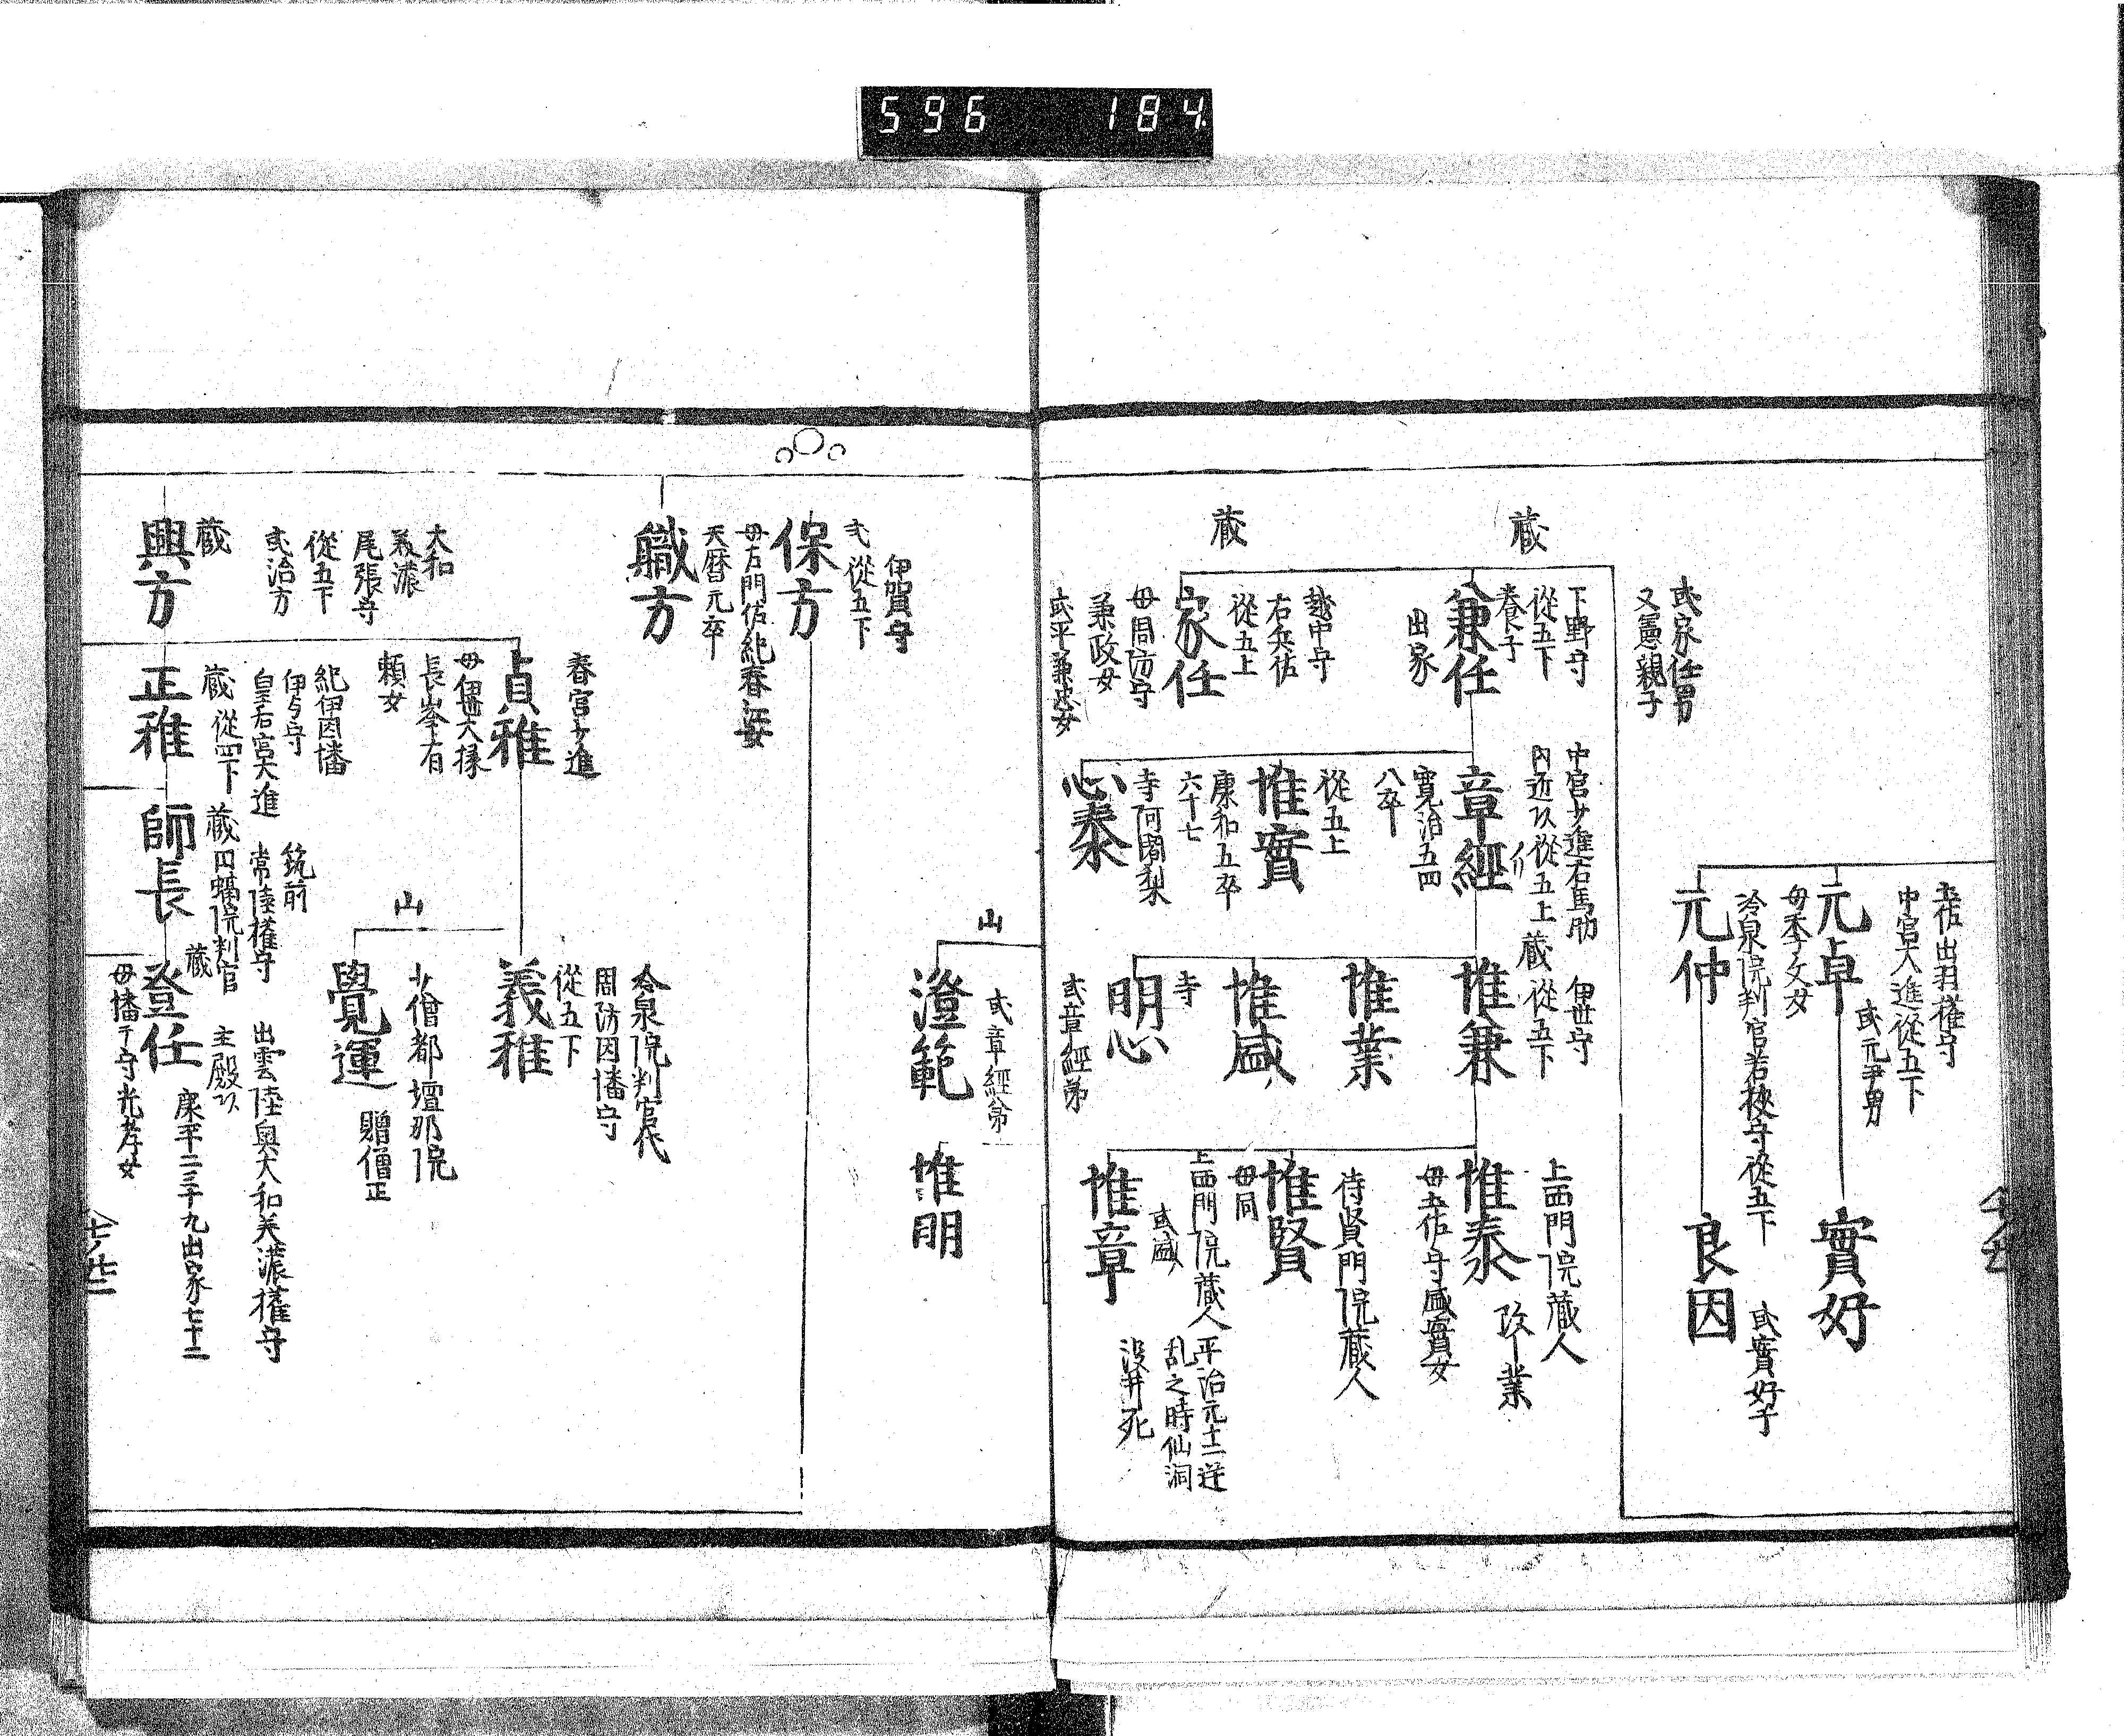 596 184
土佐出羽権守
中宮大進従五下
元卓
或元尹男
母季文女
實好
冷泉院判官若狭守従五下
元仲
或實好子
良因
或家任男
又憲親子
下野守
従五下
養子
蔵
兼任
出家
越中守
右兵佐
従五上
蔵
家任
母周防守
兼政女
或平兼忠女
中宮少進右馬助
内近以従五上
章經
寛治五四
八卒
従五上
惟實
康和五卒
六十七
寺阿闍梨
心泰
伊世守
蔵従五下
惟兼
惟業
惟盛
寺
明心
或章經弟
上西門院蔵人
改業
惟泰
母土佐守盛實女
待賢門院蔵人
惟賢
母同
上西門院蔵人
或盛
惟章
平治元十二逆
乱之時仙洞
没井死
山
或章經弟
澄範
惟明
伊賀守
従五下
保方
母右門佐純春女
天暦元卒
職方
春宮少進
貞雅
母伊世大掾
長岑有
頼女
冷泉院判官代
周防因幡守
従五下
義雅
少僧都壇那院
山
覺運
贈僧正
大和
美濃
尾張守
従五下
或治方
蔵
興方
紀伊因幡
伊与守
皇后宮大進
蔵従四下
正雅
筑前
常陸権守
蔵円融院判官
師長
出雲陸奥大和美濃権守
主殿以
蔵
登任
康平二三十九出家七十二
母幡千守光孝女